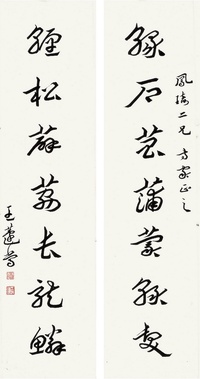 緣石菖蒲蒙綠髮
二兄方家正之
纏松薜荔長龍鱗
王蘧常